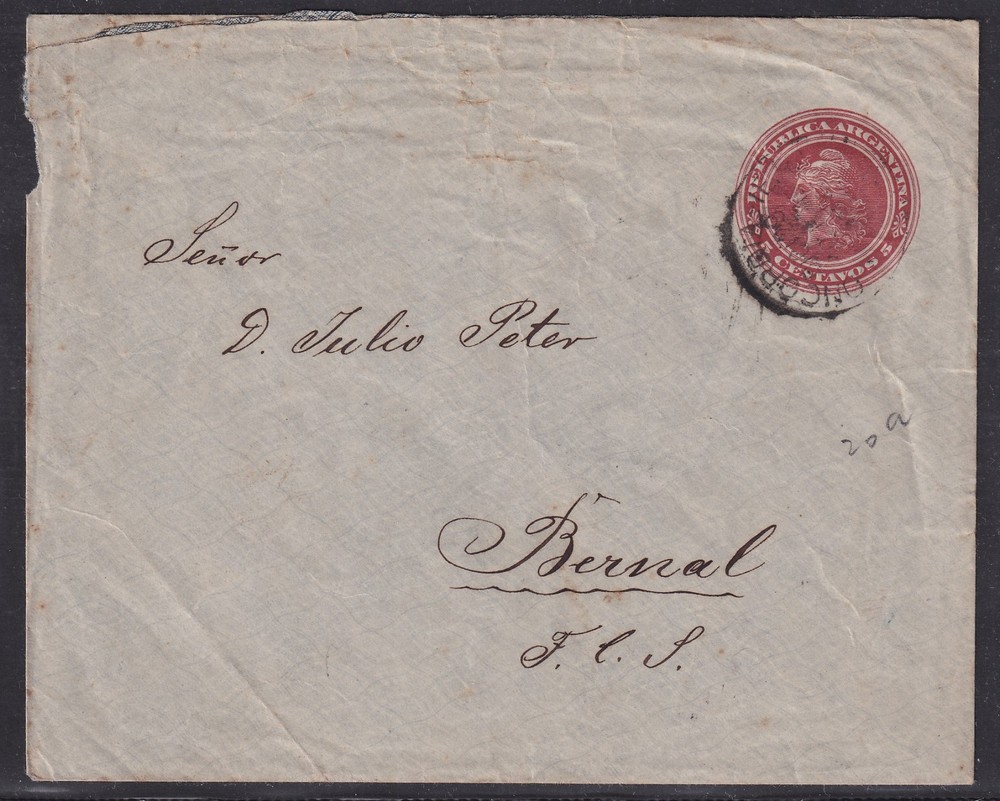 REPUBLICA ARGENTINA
5 CENTAVOS 5
CONCORDIA
Señor
D. Julio Peter
20 a
Bernal
F. C. S.